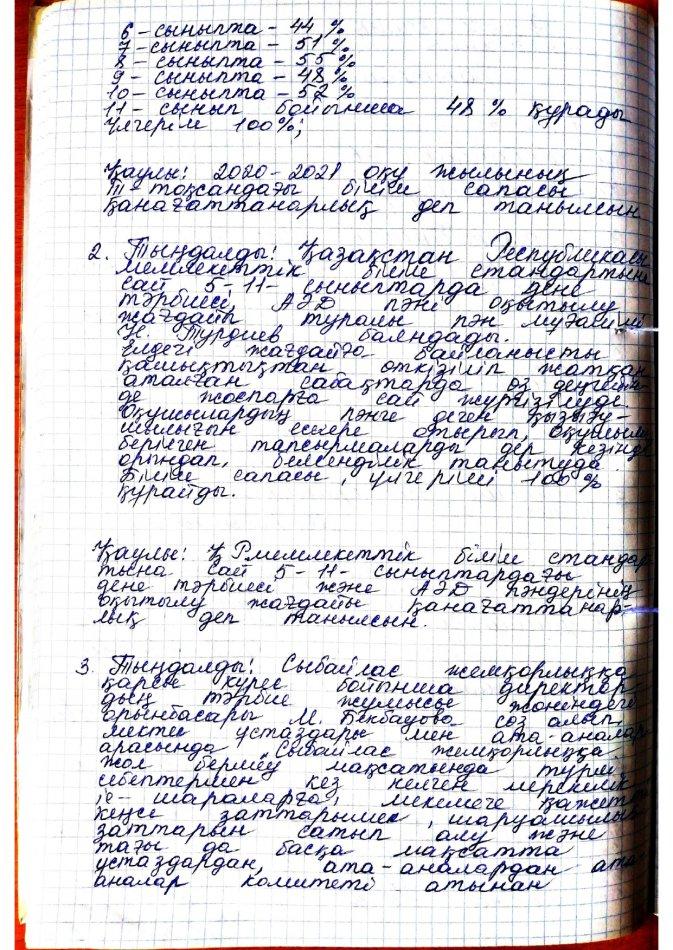 6-сыныпта - 44 %
7-сыныпта - 51 %
8-сыныпта - 55 %
9-сыныпта - 48 %
10-сыныпта - 52 %
11-сынып бойынша 48 % құрады
Үлгерім 100%;
Қаулы: 2020-2021 оқу жылының
III-тоқсандағы білім сапасы
қанағаттанарлық деп танылсын
2. Тыңдалды: Қазақстан Республикасы
мемлекеттік білім стандартына
сай 5-11-сыныптарда дене
тәрбиесі, АЭД пәні оқытылу
жағдайы туралы пән мұғалімі
Н. Турдиев баяндады.
Елдегі жағдайға байланысты
қашықтықтан өткізіліп жатқан
аталған сабақтарда өз деңгейін-
де жоспарға сай жүргізілуде.
Оқушылардың пәнге деген қызығу-
шылығын ескере отырып, оқушылар
берілген тапсырмаларды дер кезінде
орындап, белсенділік танытуда.
Білім сапасы, үлгерімі 100 %
құрайды.
Қаулы: ҚР мемлекеттік білім стандар
тына сай 5-11-сыныптардағы
дене тәрбиесі және АЭД пәндерінің
оқытылу жағдайы қанағаттанар-
лық деп танылсын.
3. Тыңдалды: Сыбайлас жемқорлыққа
қарсы күрес бойынша директор-
дың тәрбие жұмысы жөніндегі
орынбасары М. Бекбауова сөз алып,
мектеп ұстаздары мен ата-аналар
арасында "Сыбайлас жемқорлыққа
жол бермеу мақсатында түрлі
себептермен кез келген мерекелік
іс-шараларға, мекемеге қажетті
кеңсе заттарымен, шаруашылық
заттарын сатып алу және
тағы да басқа мақсатта
ұстаздардан, ата-аналардан ата-
аналар комитеті атынан